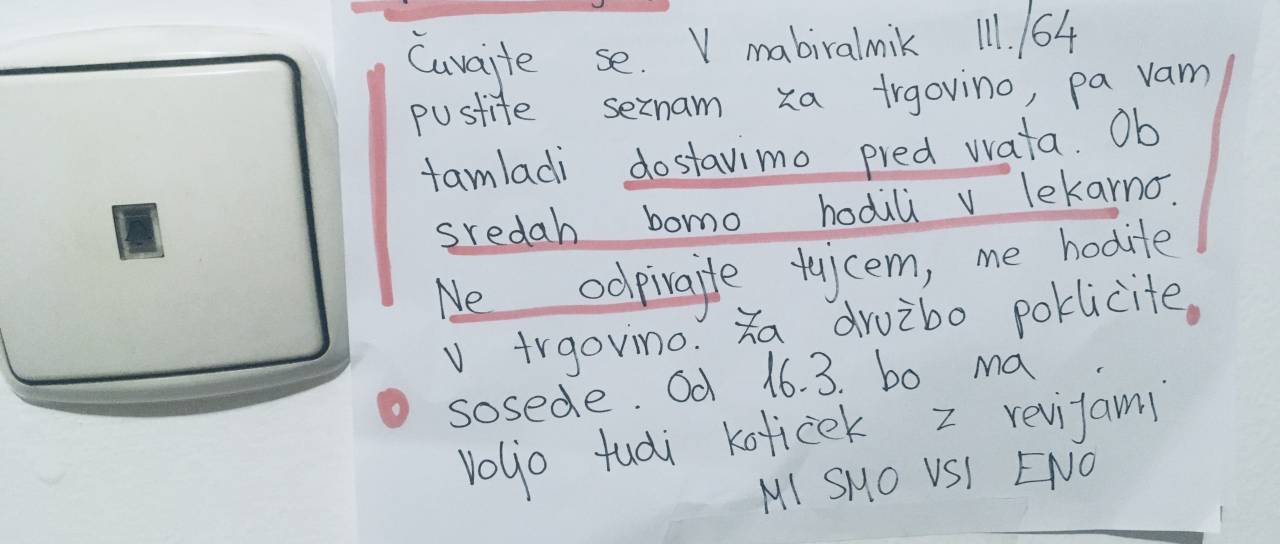 Čuvajte se. V nabiralnik III./64
pustite seznam za trgovino, pa vam
tamladi dostavimo pred vrata. Ob
sredah bomo hodili v lekarno.
Ne odpirajte tujcem, ne hodite
v trgovino. Za družbo pokličite
sosede. Od 16.3. bo na
voljo tudi kotiček z revijami
MI SMO VSI ENO